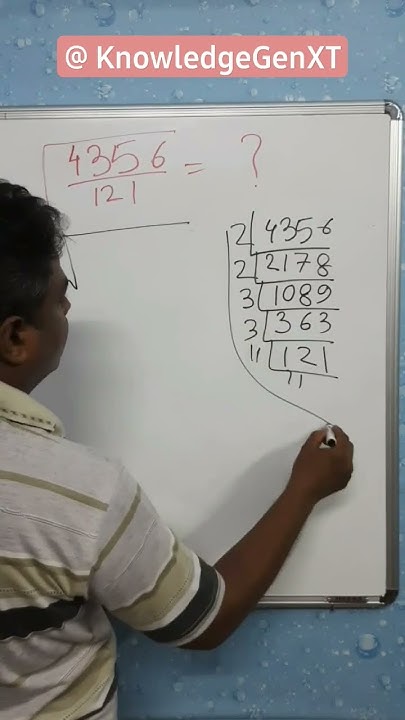 @ KnowledgeGenXT
√4356/121 = ?
√
2 | 4356
2 | 2178
3 | 1089
3 | 363
11 | 121
11